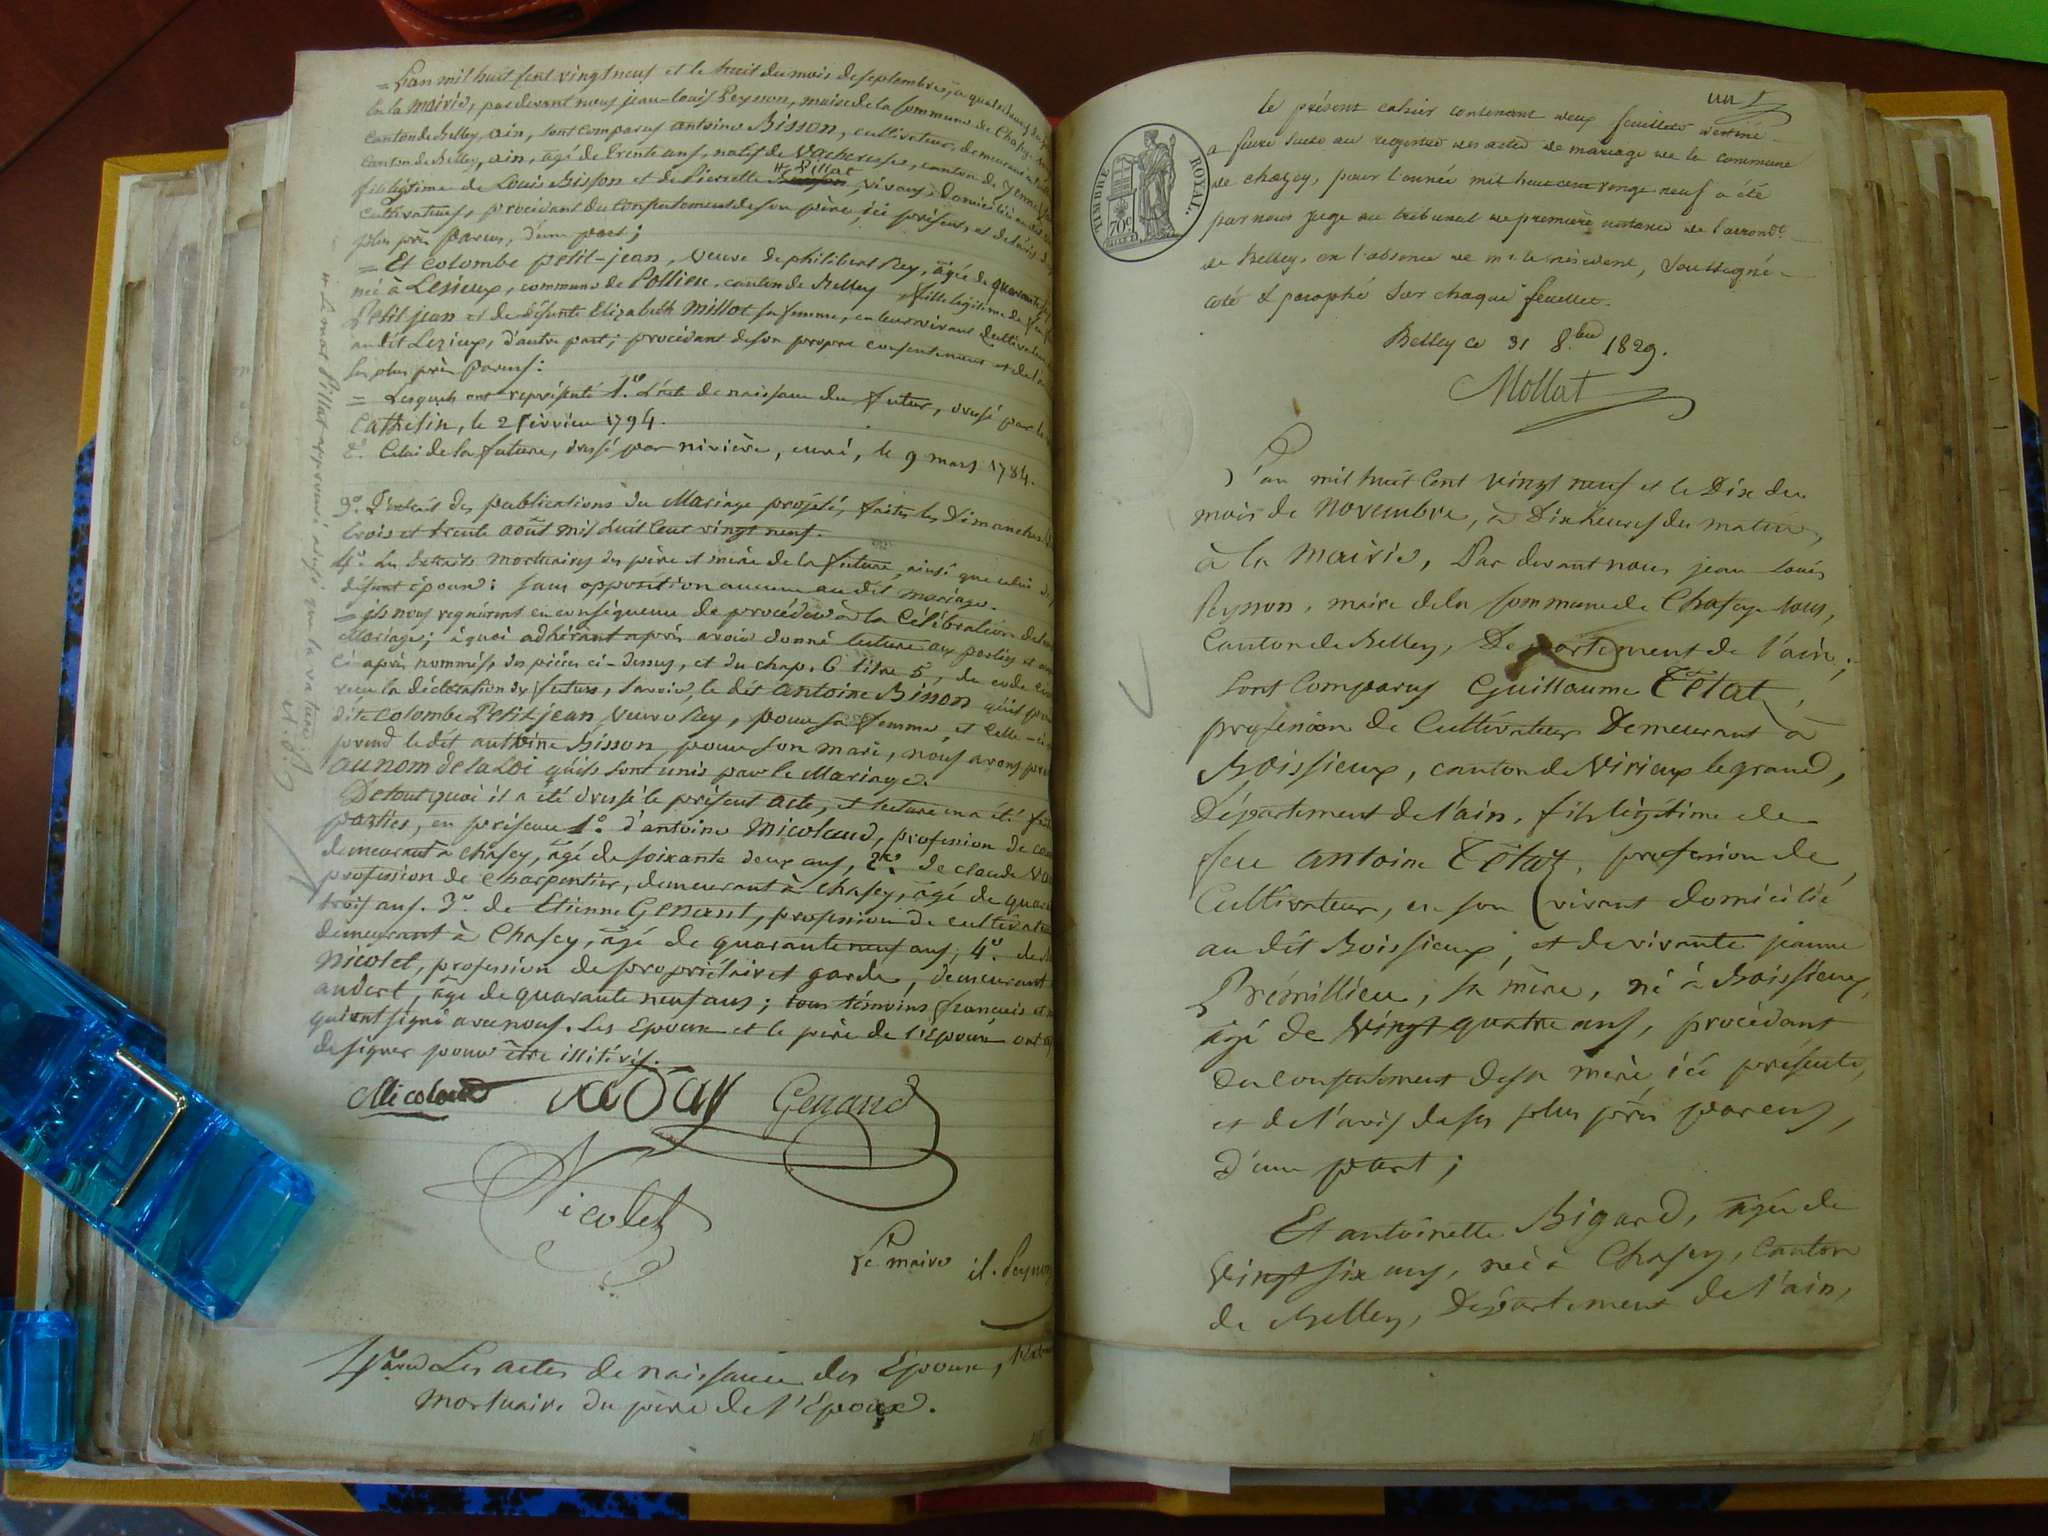 = L'an mil huit cent vingt neuf et le huit du mois de septembre, à quatre heures du
En la mairie, par devant nous jean-louis Peysson, maire de la commune de Chasey
canton de Belley, ain, sont comparus antoine Bisson, cultivateur, demeurant
canton de Belley, ain, âgé de trente ans, natif de Vacheresse, canton de Yenne
fils légitime de Louis Bisson et de Pierrette Pillat vivans, domiciliés
cultivateurs, procédant du consentement de son père, ici présent, et de l'avis
plus près parens, d'une part;
= Et colombe petit-jean, veuve de philibert Rey, âgée de quarante
née à Lezieux, commune de Pollieu, canton de Belley fille légitime de feu
Petitjean et de défunte Elizabeth Millot sa femme, en leur vivant cultivateurs
au dit Lezieux, d'autre part; procédant de son propre consentement et de l'avis
ses plus près parens:
= Lesquels ont représenté 1.º L'acte de naissance du futur, dressé par le
Cathelin, le 2 février 1794.
2.º Celui de la future, dressé par nivière, curé, le 9 mars 1784.
3.º L'extrait des publications du Mariage projeté, faites les Dimanches
trois et trente août mil huit cent vingt neuf.
4.º Les extraits mortuaires des père et mère de la future, ainsi que celui de
défunt époux: sans opposition aucune au dit mariage.
= ils nous requièrent en conséquence de procéder à la Célébration de leur
Mariage; à quoi adhérant après avoir donné lecture aux parties et aux
ci après nommés, des pièces ci-dessus, et du chap. 6 titre 5, du code civil
reçu la déclaration des futurs, savoir, le dit antoine Bisson qu'il prend
dite Colombe Petitjean veuve Rey, pour sa femme, et celle-ci
prend le dit anthoine Bisson, pour son mari, nous avons prononcé
au nom de la Loi qu'ils sont unis par le Mariage.
De tout quoi il a été dressé le présent acte, et lecture en a été faite
parties, en présence 1.º d'antoine Nicoland, profession de
demeurant à Chasey, âgé de soixante deux ans, 2.º de claude
profession de Charpentier, demeurant à Chasey, âgé de quarante
trois ans. 3.º de Etienne Genand, profession de cultivateur
demeurant à Chasey, âgé de quarante neuf ans, 4.º de
Nicolet, profession de propriétaire et garde, demeurant
andert, âgé de quarante neuf ans; tous témoins français et
qui ont signé avec nous. Les Epoux et le père de l'Epoux ont
de signer pour être illitérés.
Nicoland Genand
Nicolet
Le maire jl. Peysson
le mot Pillat approuvé ainsi que la rature
4 Les actes de naissance des Epoux, l'extrait
mortuaire du père de l'Epoux.
un
TIMBRE ROYAL
70c
le présent cahier contenant deux feuillets destiné
a faire suite au registre des actes de mariage de la commune
de chazey, pour l'année mil huit cent vingt neuf a été
par nous juge au tribunal de première instance de l'arrond.t
de Belley, en l'absence de m. le président, soussigné
coté & paraphé sur chaque feuillet.
Belley ce 31 8.bre 1829.
Mollat
L'an mil huit cent vingt neuf et le Dix du
mois de Novembre, à Dix heures du matin,
à la Mairie, Par devant nous jean Louis
Peysson, maire de la Commune de Chasey-bons,
canton de Belley, Département de l'ain;
sont Comparus Guillaume Tétat,
profession de Cultivateur Demeurant à
Boissieux, canton de Virieux le grand,
Département de l'ain, fils légitime de
feu antoine Tétaz, profession de
Cultivateur, en son vivant domicilié
au dit Boissieux, et de vivante jeanne
Prémillieu, sa mère, né à Boissieux,
âgé de Vingt quatre ans, procédant
du consentement de sa mère, ici présente,
et de l'avis de ses plus près parens,
D'une part;
Et antoinette Bigard, âgée de
Vingt six ans, née à Chasey, Canton
de Belley, Département de l'ain,